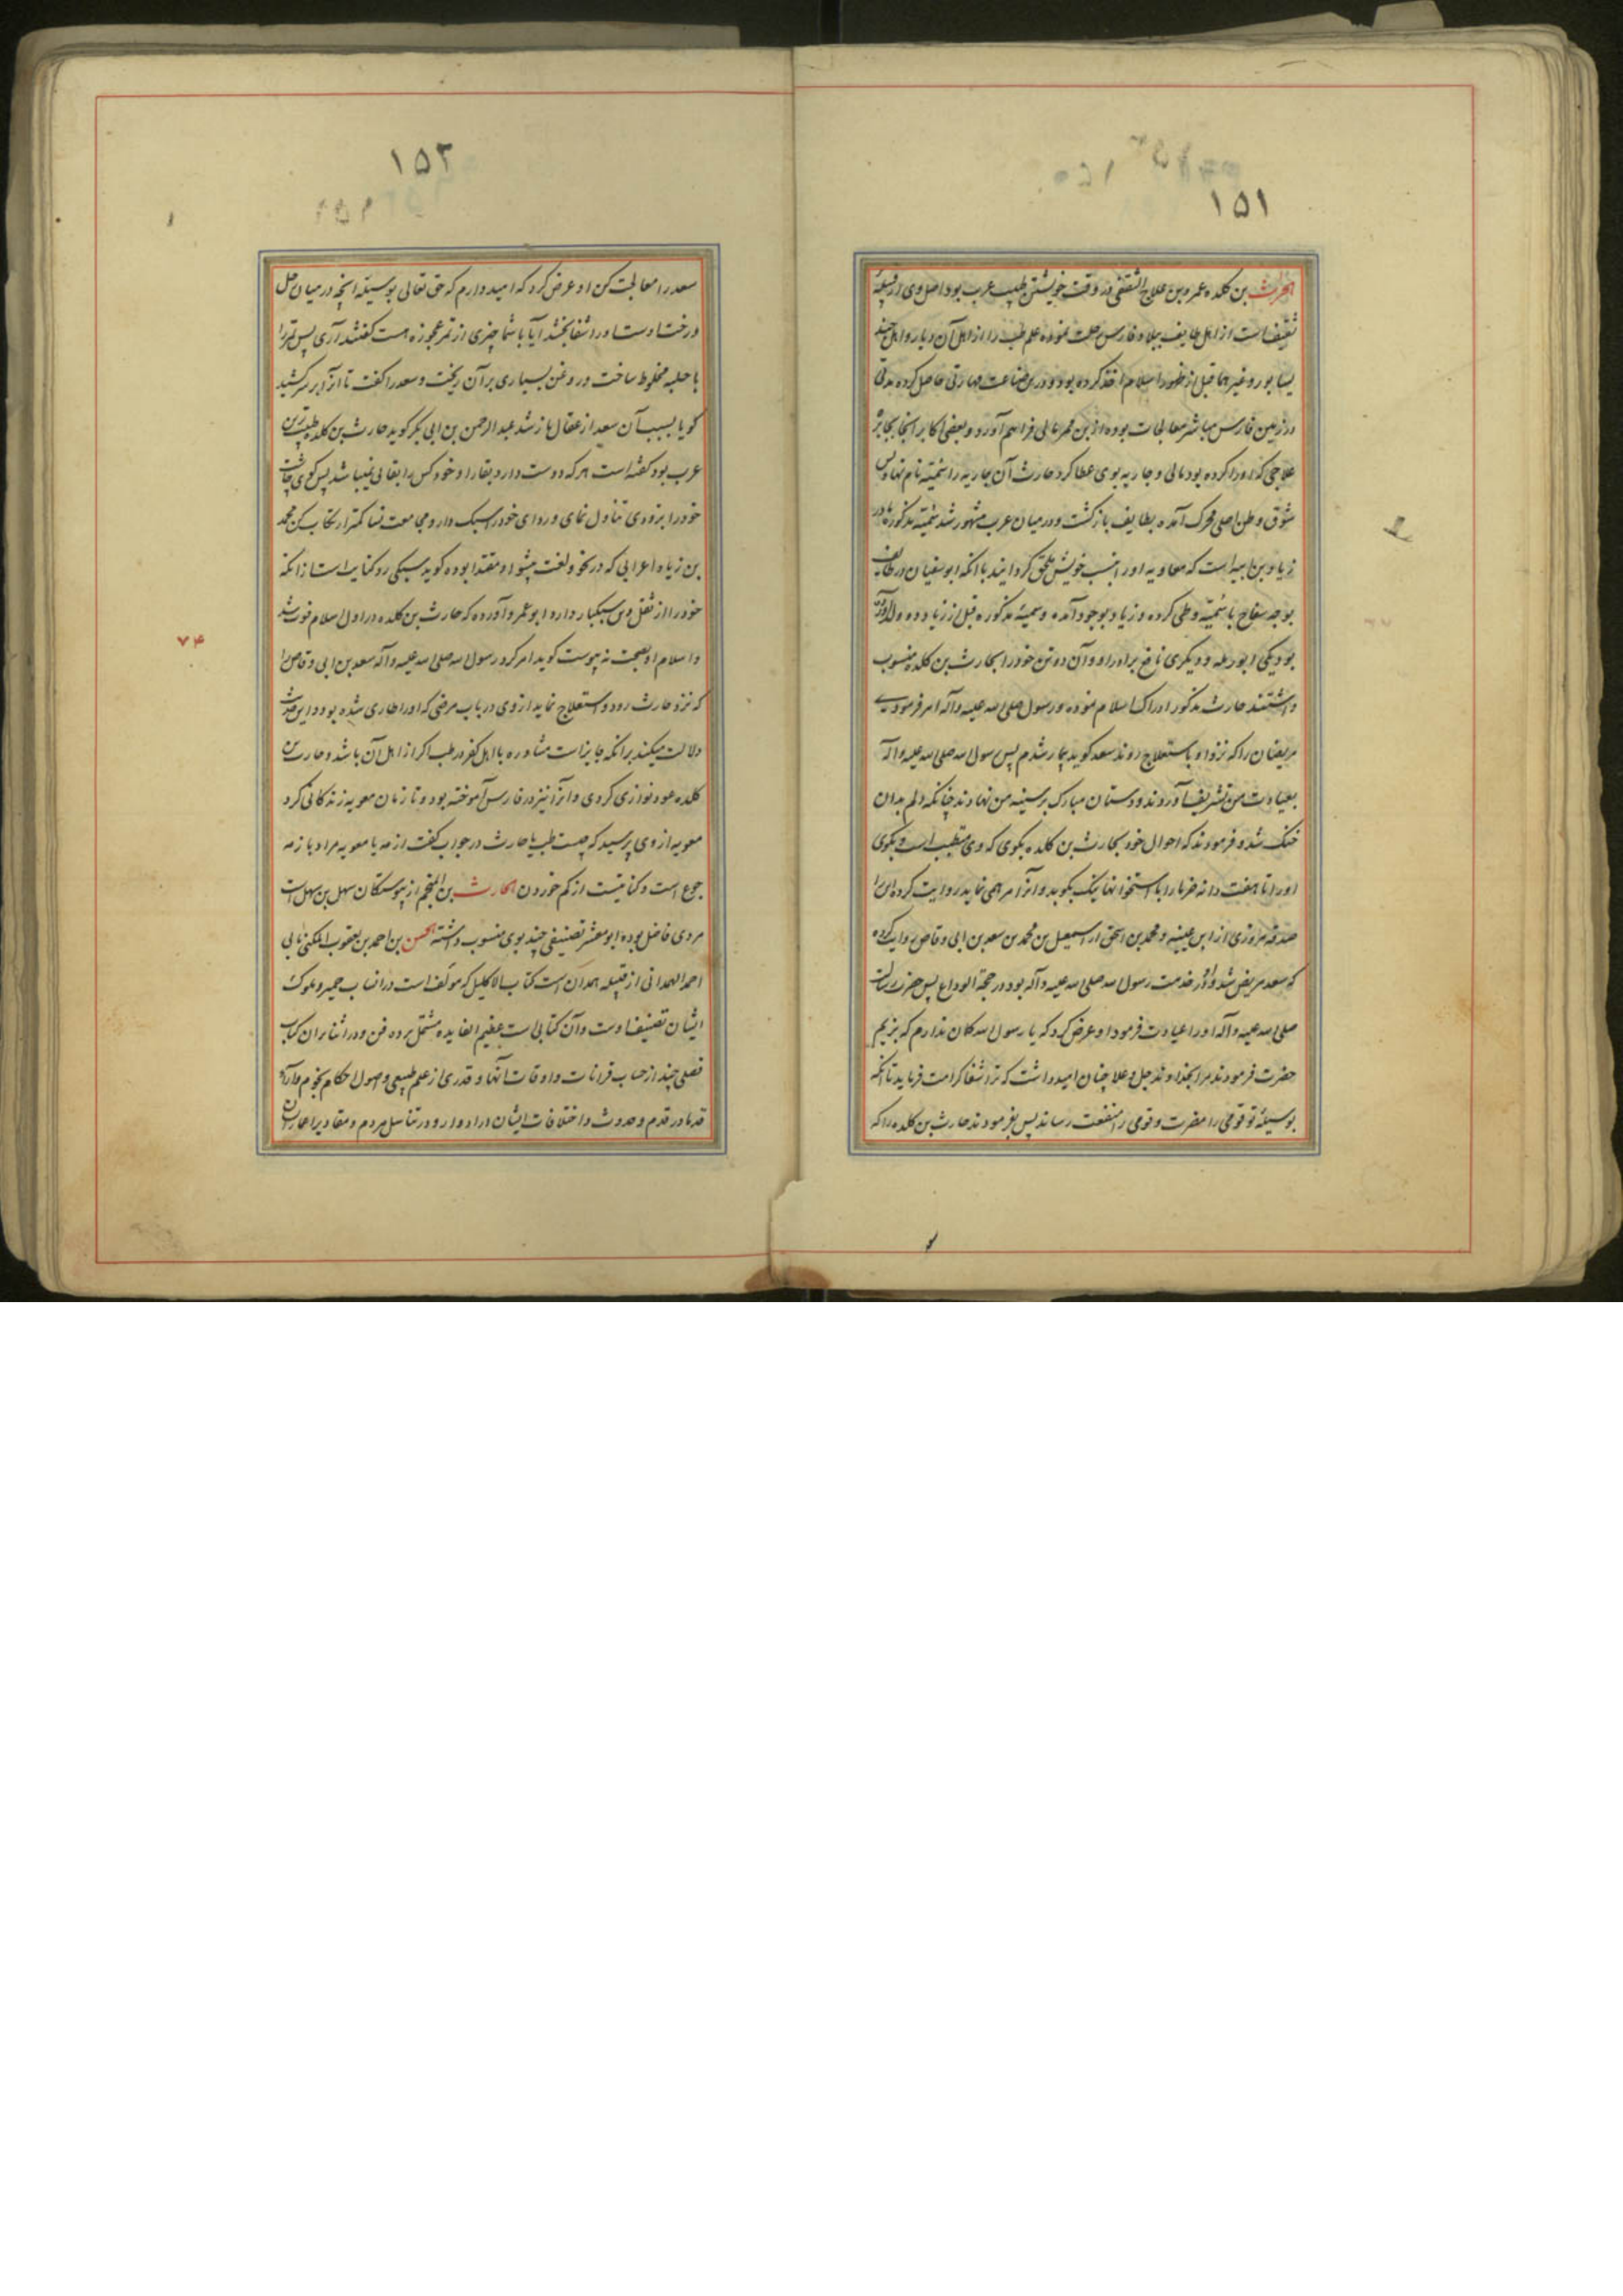 ۱۵۱
الحرث بن کلده عمرو بن علاج الثقفی در وقت خویشتن طبیب عرب بود اصل وی از قبیله
ثقیف است از اهل طایف ببلاد فارس رحلت نموده علم طب را از اهل آن دیار و اهل جند
یسابور و غیرهما قبل از ظهور اسلام اخذ کرده بود و درین صناعت مهارتی حاصل کرده مدتی
در زمین فارس مباشر معالجات بوده ازین ممر مالی فراهم آورد و بعضی اکابر آنجا بجایزه
علاجی که او را کرده بود مالی و جاریه بوی عطا کرد حارث آن جاریه را سمیّه نام نهاد پس
شوق وطن اصلی محرک آمده بطایف بازگشت و در میان عرب مشهور شد سمیّه مذکوره مادر
زیاد بن ابیه است که معاویه او را بنسب خویش ملحق گردانید با آنکه ابوسفیان در طایف
بوجه سفاح با سمیّه وطی کرده و زیاد بوجود آمده و سمیّه مذکوره قبل از زیاد دو ولد آورده
بود یکی ابوبکره و دیگری نافع برادر او و آن دو تن خود را بحارث بن کلده منسوب
داشتند حارث مذکور ادراک اسلام نموده و رسول صلی الله علیه وآله امر فرمودی
مریضان را که نزد او باستعلاج روند سعد گوید بیمار شدم پس رسول الله صلی الله علیه وآله
بعیادت من تشریف آوردند و دستان مبارک بر سینه من نهادند چنانکه دلم بدان
خنک شد و فرمودند که احوال خود بحارث بن کلده بگوی که وی متطبب است و بگوی
او را تا هفت دانه خرما را با استخوانها نیک بکوبد و آنرا مرهمی نماید روایت کرده این را
صدقه مروزی از ابن عیینه و محمد بن اسحق از اسمعیل بن محمد بن سعد بن ابی وقاص روایت کرده
که سعد مریض شد و او در خدمت رسول الله صلی الله علیه وآله بود در حجة الوداع پس حضرت رسالت
صلی الله علیه وآله او را عیادت فرمود او عرض کرد که یا رسول الله گمان ندارم که بزیم
حضرت فرمودند مرا بخداوند جل وعلا چنان امید داشت که ترا شفا کرامت فرماید تا آنکه
بوسیلۀ تو قومی را مضرت و قومی را منفعت رساند پس بفرمودند حارث بن کلده را که
۱۵۲
سعد را معالجت کن او عرض کرد که امیدوارم که حق تعالی بوسیله آنچه در میان رحل
و رخت اوست او را شفا بخشد آیا با شما چیزی از تمر عجوزه هست گفتند آری پس تمر را
با حلبه مخلوط ساخت و روغن بسیاری بر آن ریخت و سعد را گفت تا آنرا بر سر کشید
گویا بسبب آن سعد از عقال باز شد عبدالرحمن بن ابی بکر گوید حارث بن کلده طبیب ترین
عرب بود گفته است هر که دوست دارد بقا را و خود کس را بقا نمیباشد پس گوی چاشت
خود را بزودی تناول نمای و ردای خود را سبک دار و مجامعت نسا کمتر ارتکاب کن محمد
بن زیاد اعرابی که در نحو و لغت پیشوا و مقتدا بوده گوید سبکی ردا کنایه است از آنکه
خود را از ثقل دین سبکبار دارد ابو عمرو آورده که حارث بن کلده در اول اسلام فوت شد
و اسلام او بصحت نه پیوست گوید امر کرد رسول الله صلی الله علیه وآله سعد بن ابی وقاص را
که نزد حارث رود و استعلاج نماید از وی در باب مرضی که او را طاری شده بود و این حدیث
دلالت میکند بر آنکه جایز است مشاوره با اهل کفر در طب اگر از اهل آن باشد و حارث بن
کلده عود نوازی کردی و آنرا نیز در فارس آموخته بود و تا زمان معویه زندگانی کرد
معویه از وی پرسید که چیست طب یا حارث در جواب گفت ازمه یا معویه مراد بازمه
جوع است و کنایتست از کم خوردن الحارث بن المنجم از پیوستگان سهل بن سهل است
مردی فاضل بوده ابومعشر تصنیفی چند بوی منسوب داشته الحسن بن احمد بن یعقوب المکنی بابی
احمد الهمدانی از قبیله همدان است کتاب الاکلیل که مولف است در انساب حمیر و ملوک
ایشان تصنیف اوست و آن کتابی است عظیم الفایده مشتمل بر ده فن و در اثنای آن کتاب
فصلی چند از حساب قرانات و اوقات آنها و قدری از علم طبیعی و اصول احکام نجوم و آراء
قدما در قدم و حدوث و اختلافات ایشان در ادوار و در تناسل مردم و مقادیر اعمار ایشان
۷۴